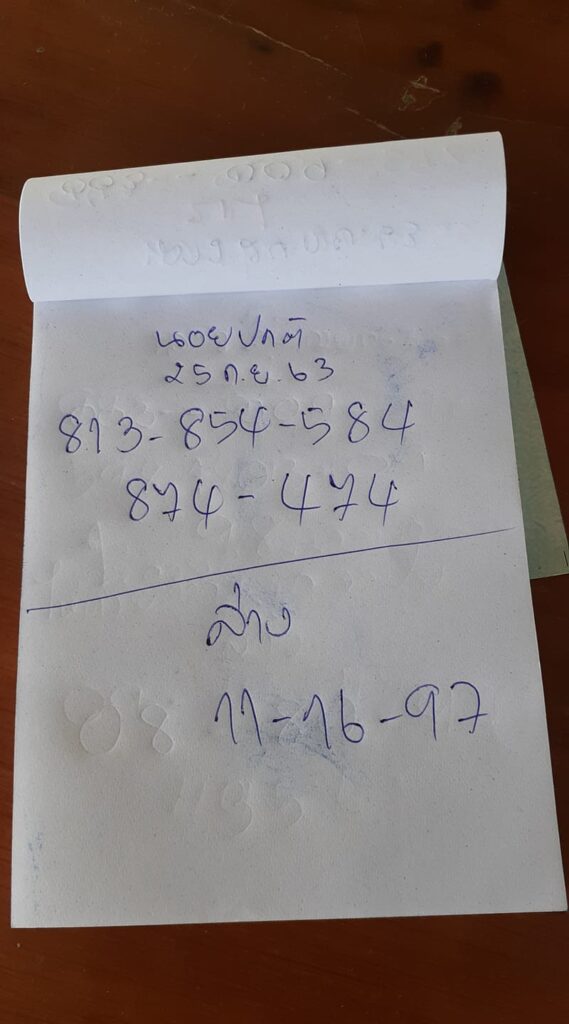 นอยปกติ
25 ก.ย. 63
813-854-584
874-474
ล่าง
11-16-97